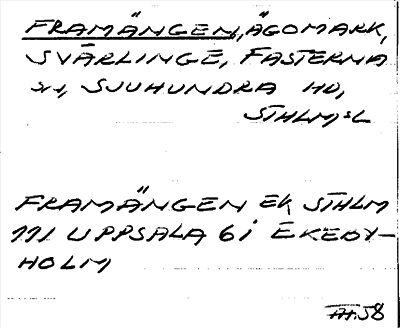 FRAMÄNGEN, ÄGOMARK,
SVÄRLINGE, FASTERNA
SN, SJUHUNDRA HD,
STHLMS L
FRAMÄNGEN EK STHLM
111 UPPSALA 6 i EKEBY-
HOLM
58